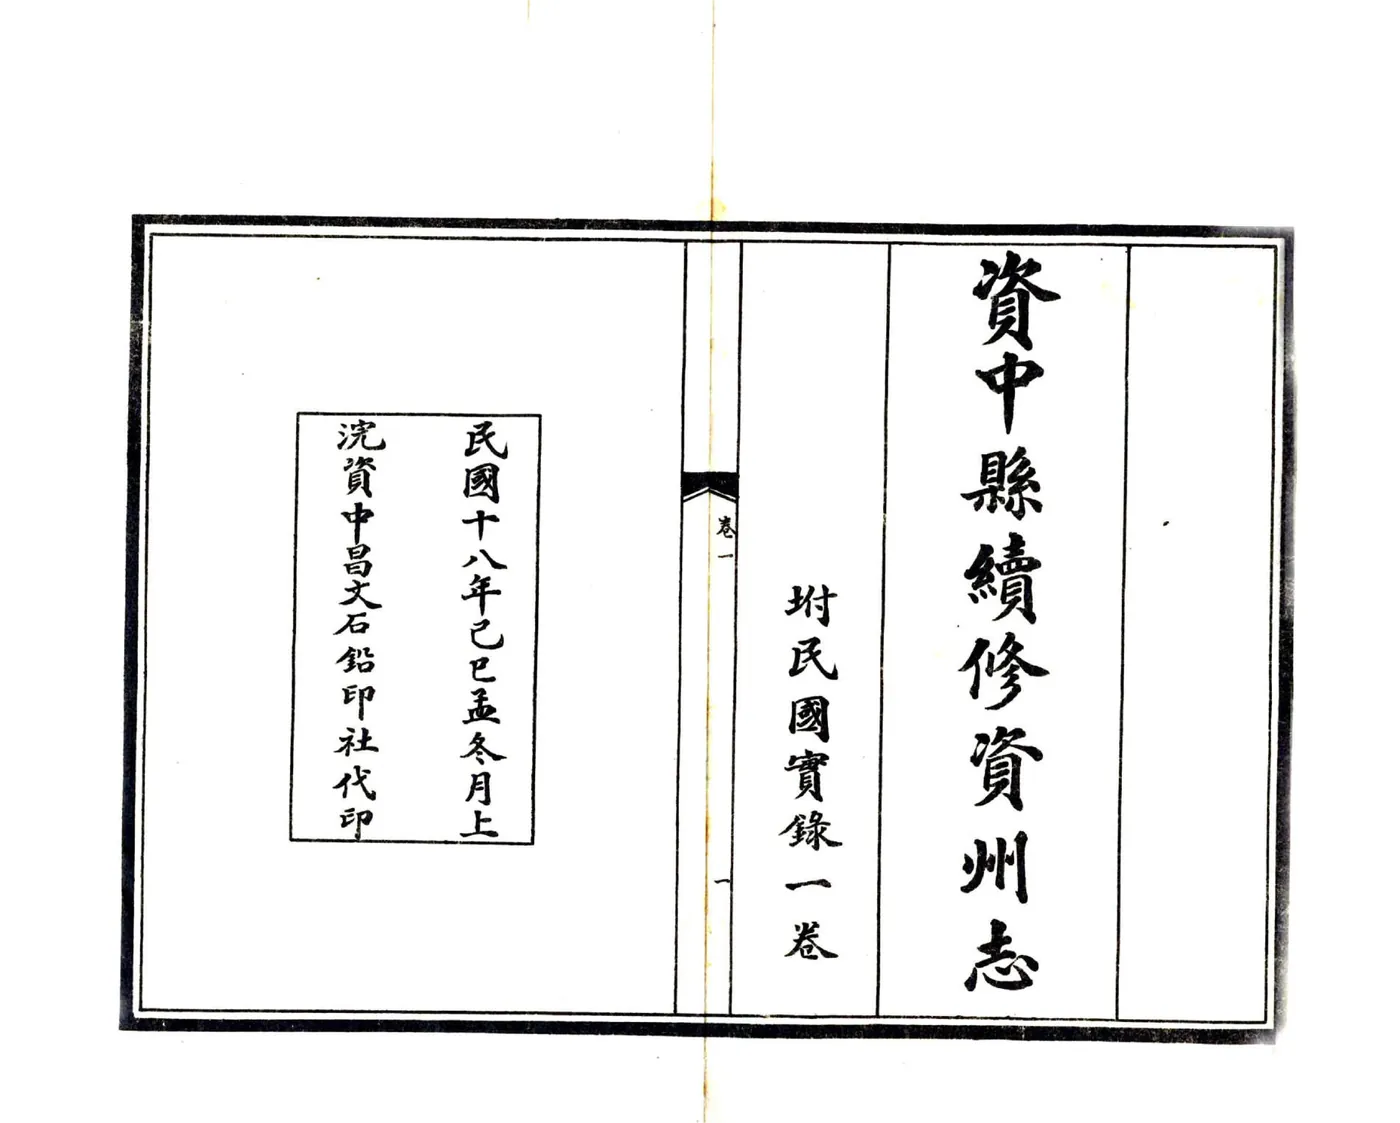 資中縣續修資州志
坿民國實錄一卷
卷一
一
民國十八年己巳孟冬月上
浣資中昌文石鉛印社代印